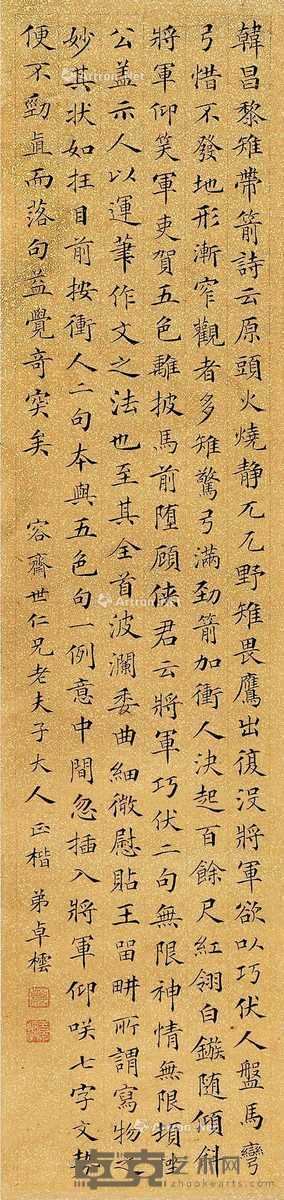 韓昌黎雉帶箭詩云原頭火燒靜兀兀野雉畏鷹出復沒將軍欲以巧伏人盤馬彎
弓惜不發地形漸窄觀者多雉驚弓滿勁箭加衝人決起百餘尺紅翎白鏃隨傾斜
將軍仰笑軍吏賀五色離披馬前墮顧俠君云將軍巧伏二句無限神情無限頓挫
公蓋示人以運筆作文之法也至其全首波瀾委曲細微慰貼王留畊所謂寫物之
妙其狀如在目前按衝人二句本與五色句一例意中間忽插入將軍仰咲七字文勢
便不勁直而落句益覺奇突矣
容齋世仁兄老夫子大人正楷 弟卓檁
Artron.Net
卓克艺术网
www.zhuokearts.com